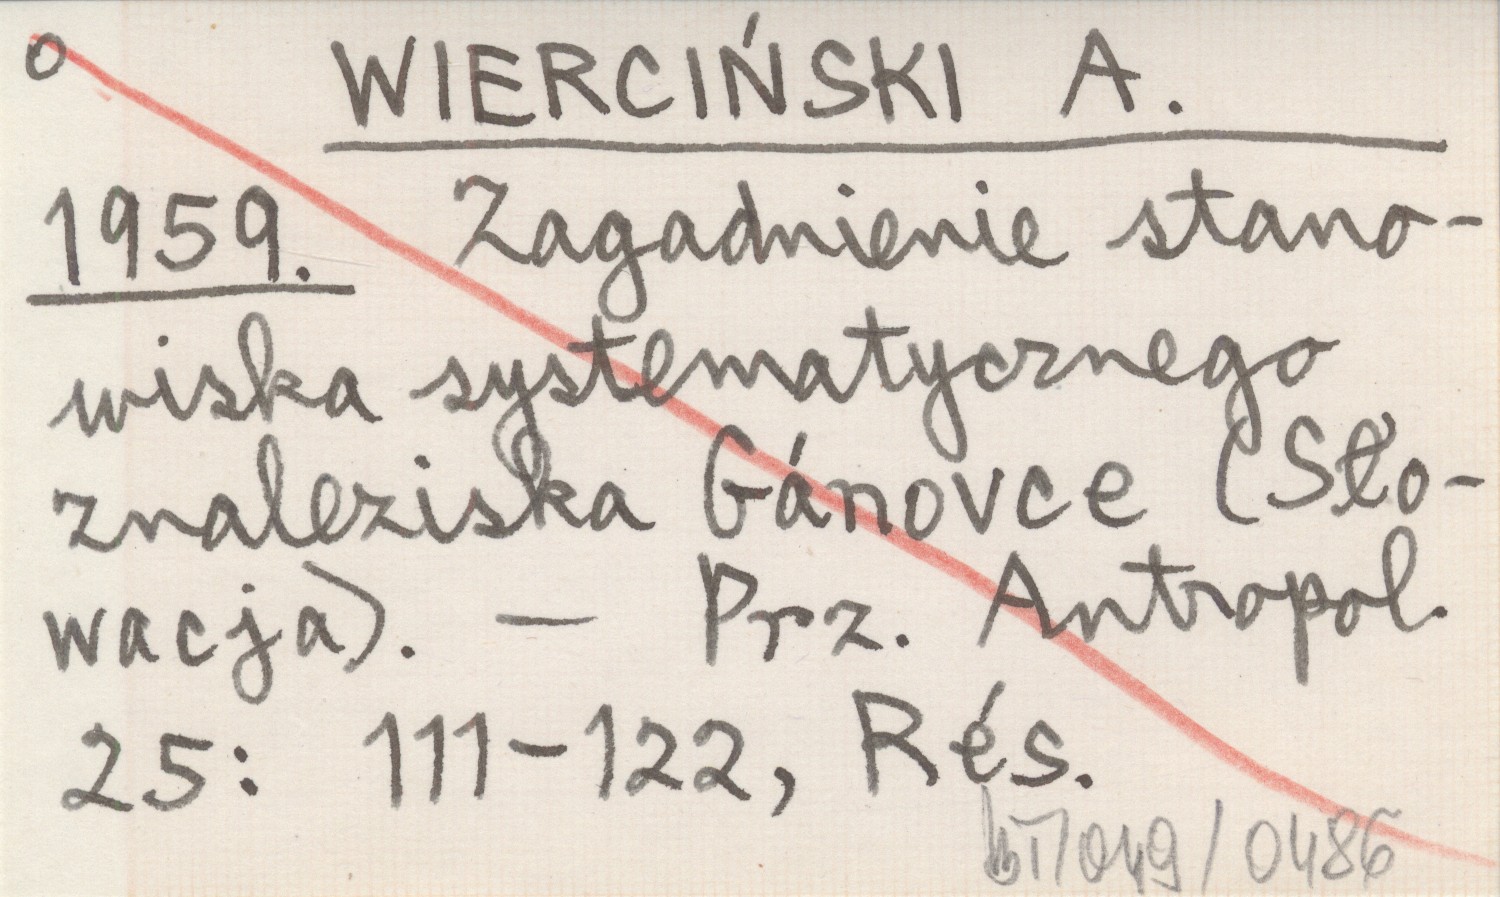 o WIERCIŃSKI A.
1959. Zagadnienie stano-
wiska systematycznego
znaleziska Gánovce (Sło-
wacja). — Prz. Antropol.
25: 111-122, Rés.
/049/0486